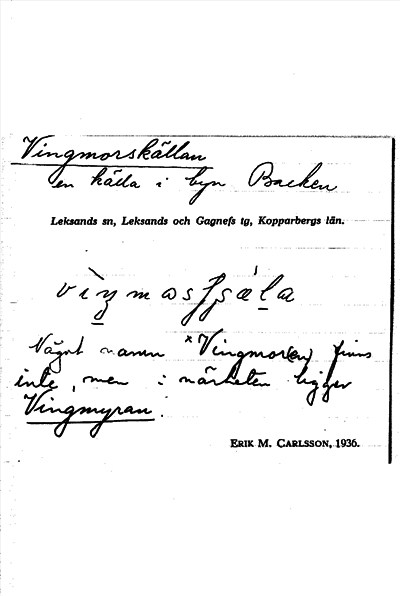 Vingmorskällan
en källa i byn Backen
Leksands sn, Leksands och Gagnefs tg, Kopparbergs län.
Något namn ˣVingmor(en) finns
inte, men i närheten ligger
Vingmyran.
ERIK M. CARLSSON, 1936.